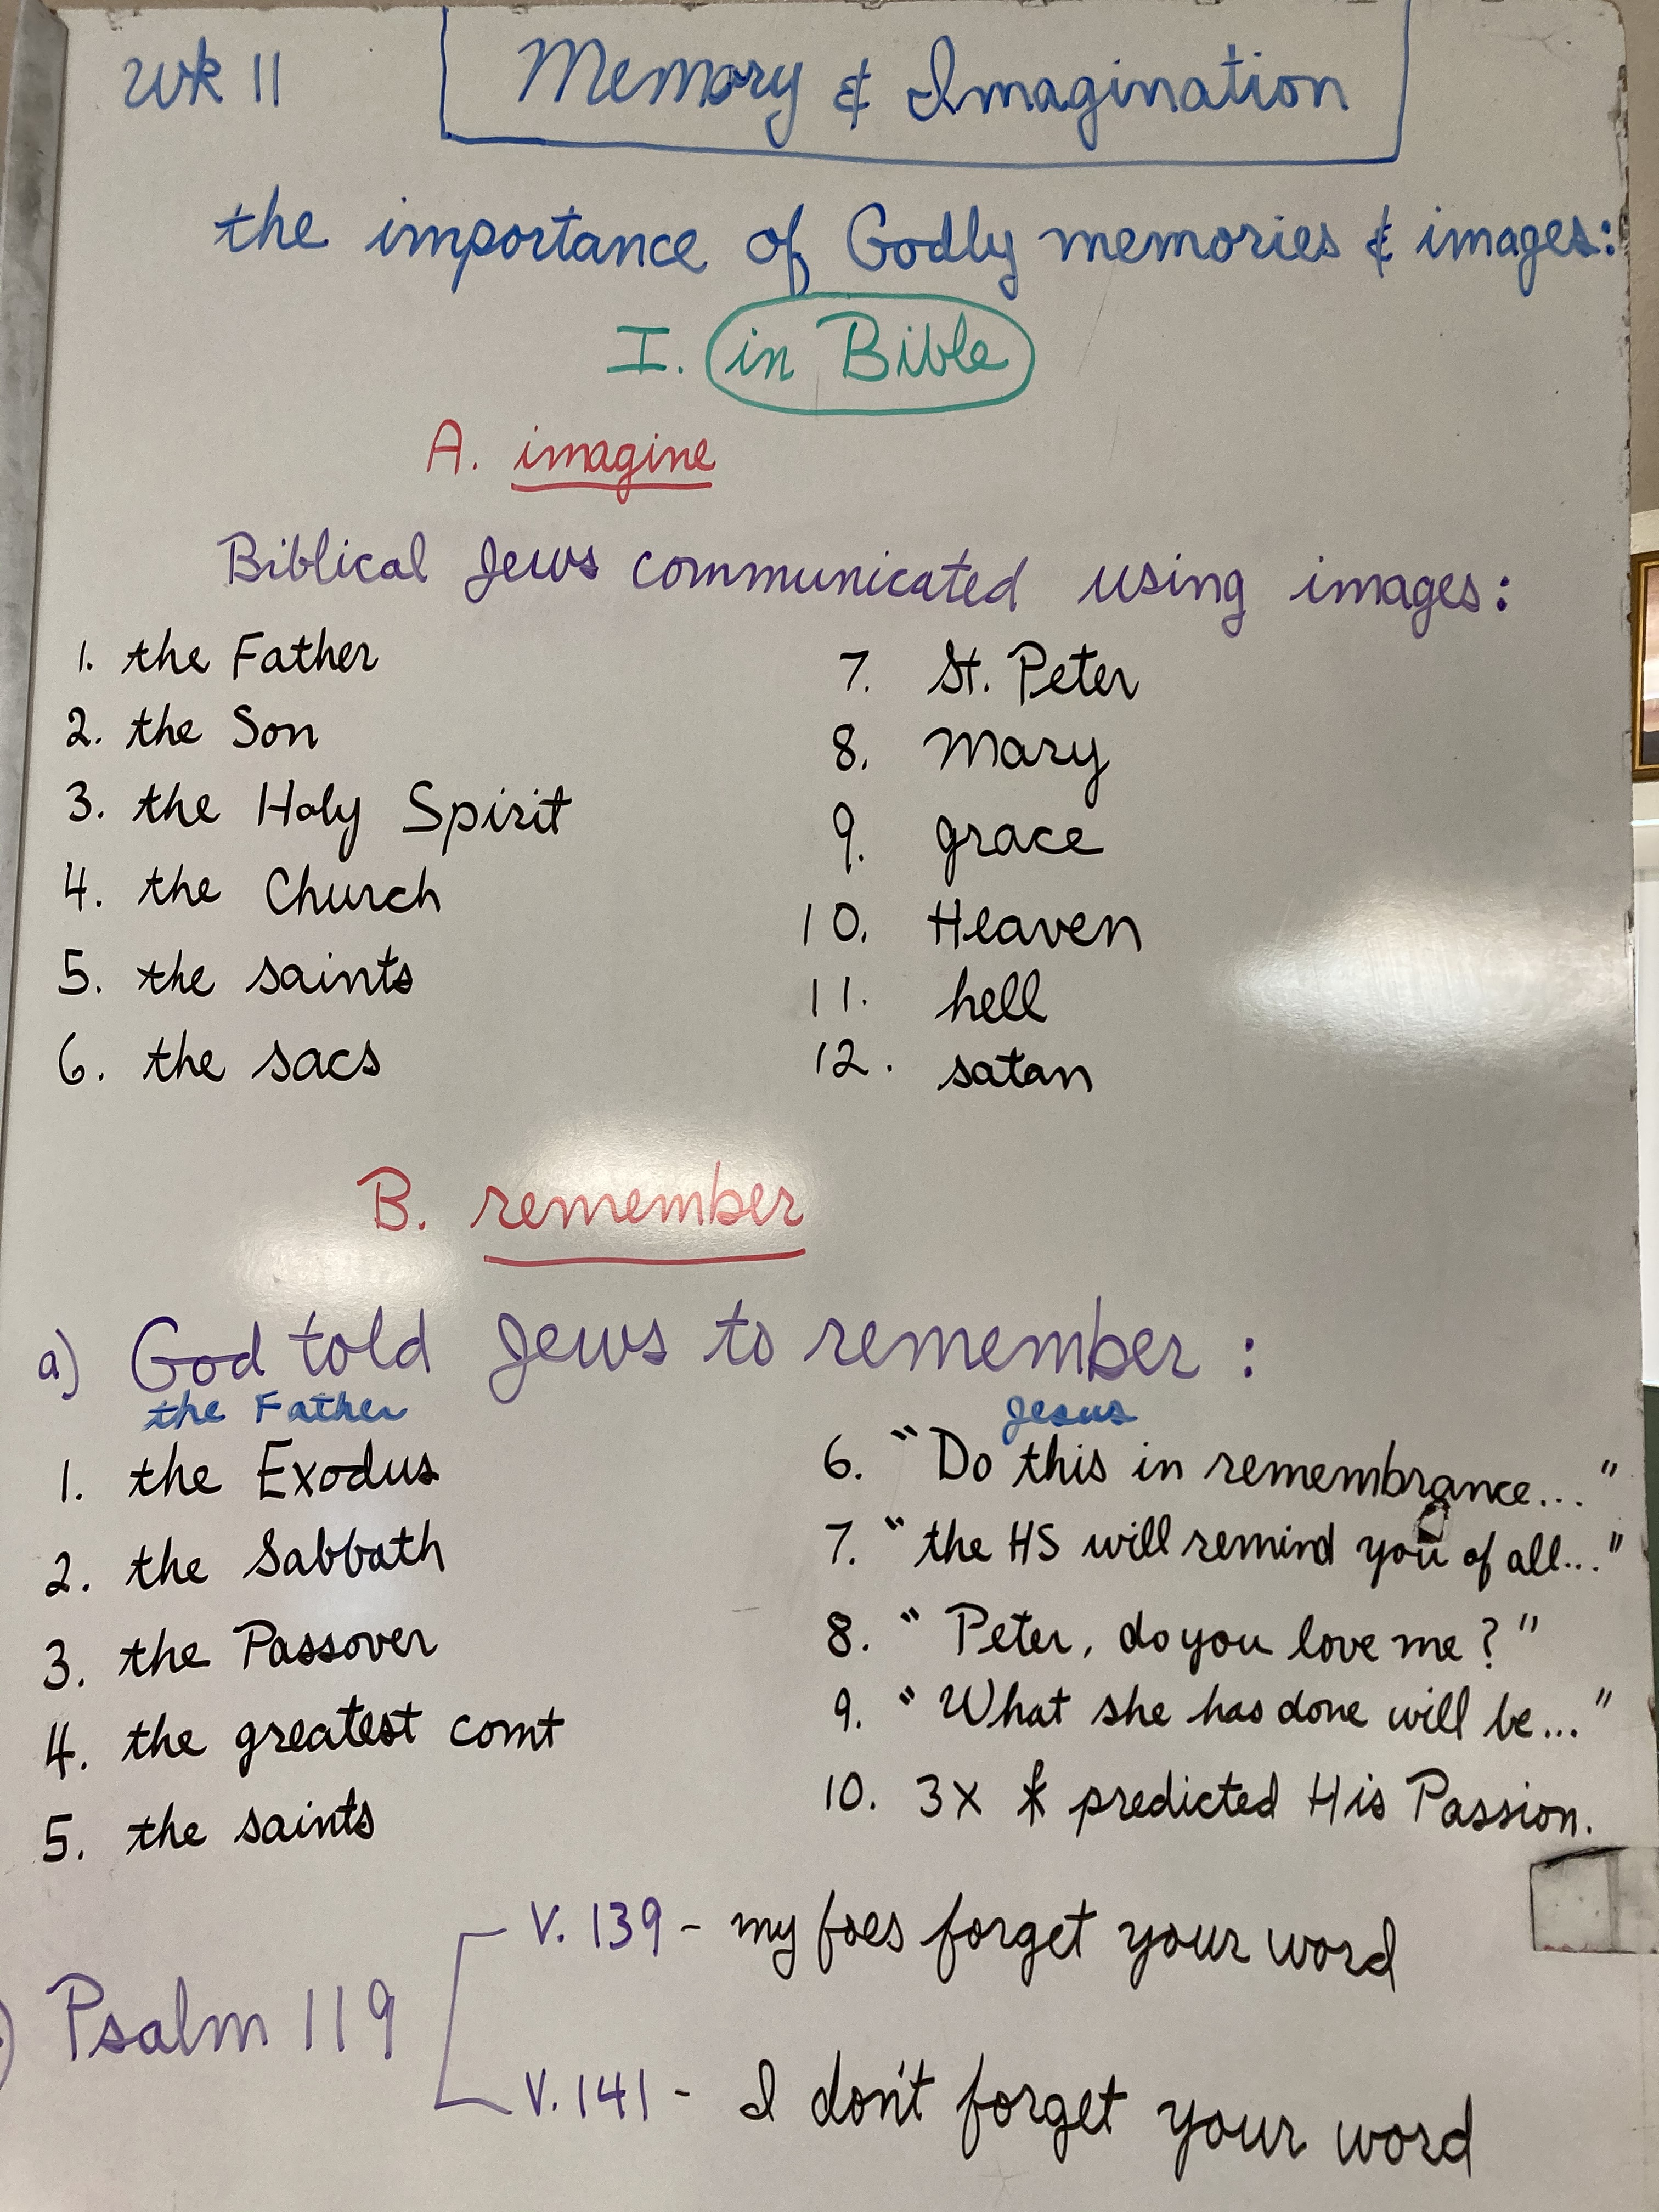 Wk 11
Memory & Imagination
the importance of Godly memories & images:
I. in Bible
A. imagine
Biblical Jews communicated using images:
1. the Father
2. the Son
3. the Holy Spirit
4. the Church
5. the saints
6. the sacs
7. St. Peter
8. Mary
9. grace
10. Heaven
11. hell
12. satan
B. remember
a) God told Jews to remember:
the Father
1. the Exodus
2. the Sabbath
3. the Passover
4. the greatest comt
5. the saints
Jesus
6. "Do this in remembrance..."
7. "the HS will remind you of all..."
8. "Peter, do you love me?"
9. "What she has done will be..."
10. 3x predicted His Passion.
) Psalm 119
V. 139 - my foes forget your word
V. 141 - I don't forget your word